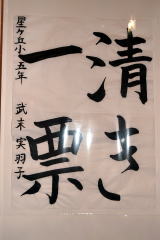 清き
一票
星ケ丘小五年 武末実羽子